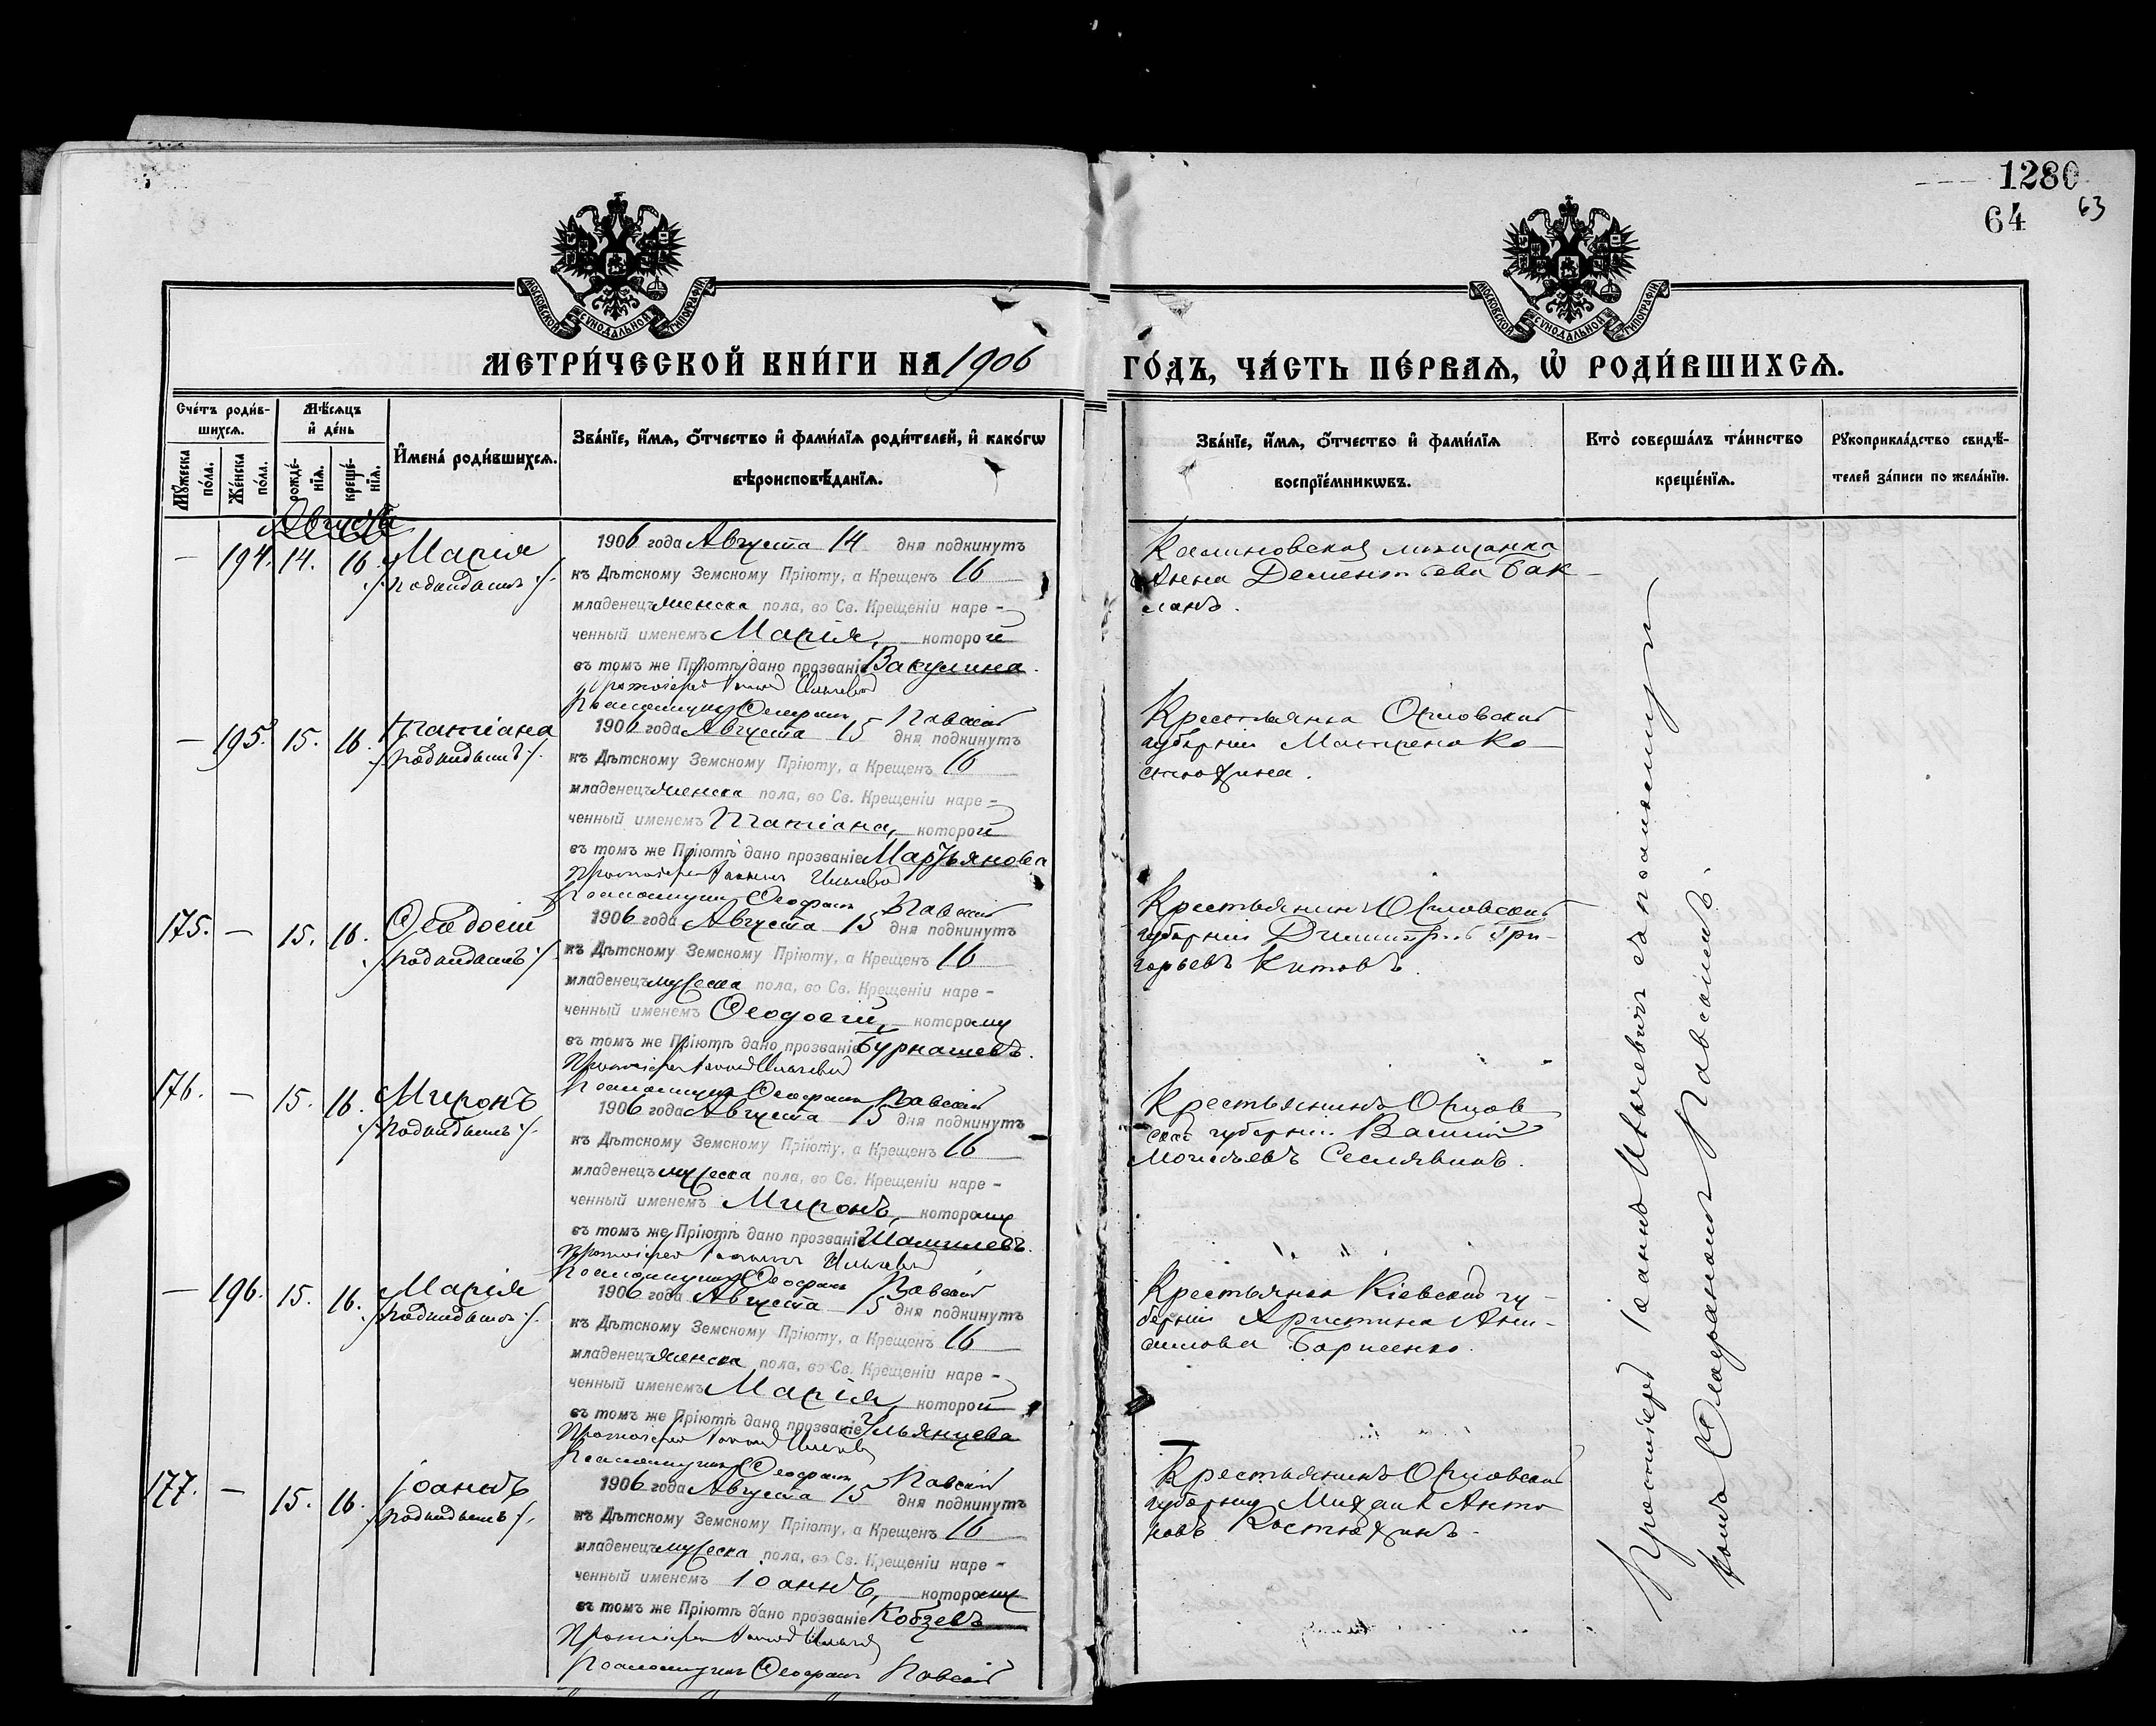 1280
64
63
МОСКОВСКОЙ СѴНОДАЛЬНОЙ ТИПОГРАФІИ
МОСКОВСКОЙ СѴНОДАЛЬНОЙ ТИПОГРАФІИ
МЕТРИ́ЧЕСКОЙ КНИ́ГИ НА 1906
ГО́ДЪ, ЧА́СТЬ ПЕ́РВАѦ, Ѡ҆ РОДИ́ВШИХСѦ.
Сче́тъ роди́в-
шихсѧ.
Мꙋ́жеска по́ла.
Же́нска по́ла.
Мѣ́сѧцъ
и҆ де́нь
рожде́-
нїѧ.
креще́-
нїѧ.
И҆мена̀ роди́вшихсѧ.
Зва́нїе, и҆́мѧ, ѻ҆́тчество и҆ фамі́лїѧ роди́телей, и҆ како́гѡ
вѣроисповѣ́данїѧ.
Зва́нїе, и҆́мѧ, ѻ҆́тчество и҆ фамі́лїѧ
воспрїе́мникѡвъ.
Кто̀ соверша́лъ та́инство
креще́нїѧ.
Рꙋкоприкла́дство свидѣ́-
телей за́писи по жела́нїю.
Августъ
— 194. 14. 16. Марія
/: подкидышъ :/
1906 года Августа 14 дня подкинутъ
къ Дѣтскому Земскому Пріюту, а Крещенъ 16
младенецъ женска пола, во Св. Крещеніи наре-
ченный именемъ Марія, которой
въ томъ же Пріютѣ дано прозваніе Вакулина.
Протоіерей Іоаннъ Ильичевъ
Псаломщикъ Ѳеофанъ Павскій
Калиновская мѣщанка
Анна Дементьева Бак-
ланъ.
— 195. 15. 16. Татіана
/: подкидышъ :/
1906 года Августа 15 дня подкинутъ
къ Дѣтскому Земскому Пріюту, а Крещенъ 16
младенецъ женска пола, во Св. Крещеніи наре-
ченный именемъ Татіана, которой
въ томъ же Пріютѣ дано прозваніе Марьянова
Протоіерей Іоаннъ Ильичевъ
Псаломщикъ Ѳеофанъ Павскій
Крестьянка Орловской
губерніи Матрена Ко-
стюхина.
175. — 15. 16. Ѳеодосій
/: подкидышъ :/
1906 года Августа 15 дня подкинутъ
къ Дѣтскому Земскому Пріюту, а Крещенъ 16
младенецъ мужеска пола, во Св. Крещеніи наре-
ченный именемъ Ѳеодосій, которому
въ томъ же Пріютѣ дано прозваніе Бурнашевъ.
Протоіерей Іоаннъ Ильичевъ
Псаломщикъ Ѳеофанъ Павскій
Крестьянинъ Орловской
губерніи Димитрій Гри-
горьевъ Китовъ.
176. — 15. 16. Миронъ
/: подкидышъ :/
1906 года Августа 15 дня подкинутъ
къ Дѣтскому Земскому Пріюту, а Крещенъ 16
младенецъ мужеска пола, во Св. Крещеніи наре-
ченный именемъ Миронъ, которому
въ томъ же Пріютѣ дано прозваніе
Протоіерей Іоаннъ Ильичевъ
Псаломщикъ Ѳеофанъ Павскій
Крестьянинъ Орлов
ской губерніи Василій
Моисѣевъ Сеславинъ.
— 196. 15. 16. Марія
/: подкидышъ :/
1906 года Августа 15 дня подкинутъ
къ Дѣтскому Земскому Пріюту, а Крещенъ 16
младенецъ женска пола, во Св. Крещеніи наре-
ченный именемъ Марія, которой
въ томъ же Пріютѣ дано прозваніе Ульянцева
Протоіерей Іоаннъ Ильичевъ
Псаломщикъ Ѳеофанъ Павскій
Крестьянка Кіевской гу-
берніи Христина Они-
симова Борисенко.
177. — 15. 16. Іоаннъ
/: подкидышъ :/
1906 года Августа 15 дня подкинутъ
къ Дѣтскому Земскому Пріюту, а Крещенъ 16
младенецъ мужеска пола, во Св. Крещеніи наре-
ченный именемъ Іоаннъ, которому
въ томъ же Пріютѣ дано прозваніе Кобзевъ
Протоіерей Іоаннъ Ильичевъ
Псаломщикъ Ѳеофанъ Павскій
Крестьянинъ Орловской
губерніи Михаилъ Анто
новъ Костюхинъ.
Протоіерей Іоаннъ Ильичевъ съ псаломщи
комъ Ѳеофаномъ Павскимъ.